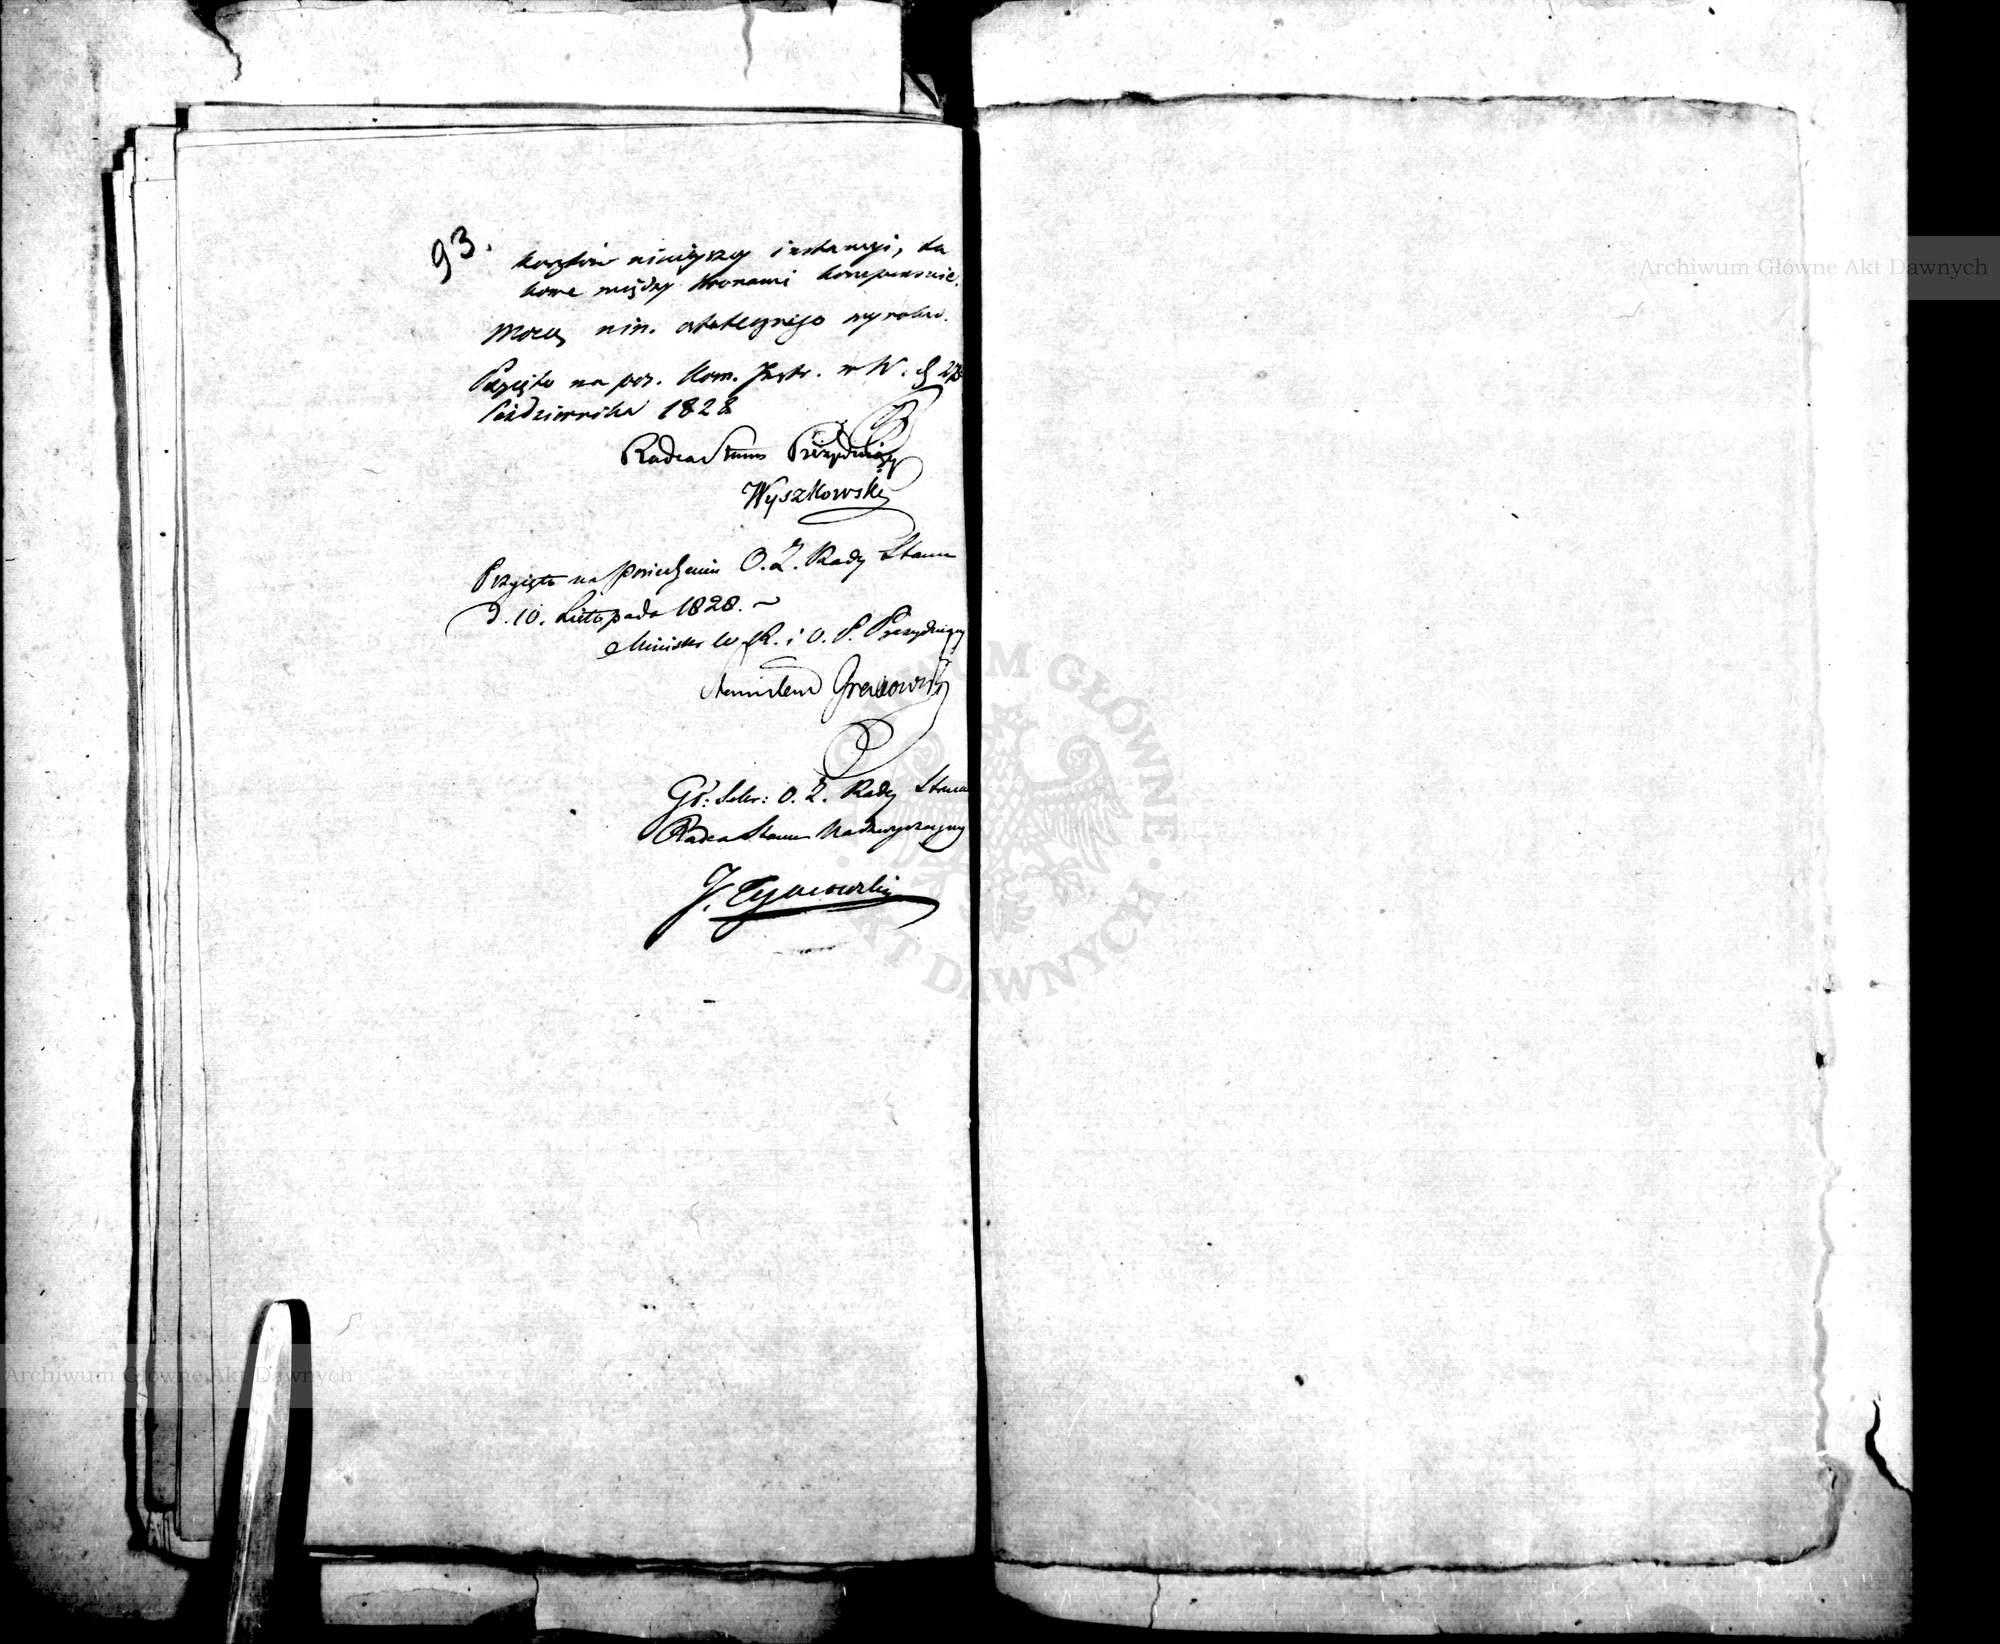 93.
kosztów niniejszy instancyi, ta
kowe między stronami kompensuie.
Mocą nin. ostatecznego wyroku.
Przyięto na pos. Kom. Instr. w W. d 27
Października 1828
Radca Stanu Prezyduiący
Wyszkowski
Przyięto na posiedzeniu O. Z. Rady Stanu
d. 10. Listopada 1828.
Minister W. R. i O. P. Prezyduiący
Stanisław Grabowski
Gł: Sekr: O. Z. Rady Stanu
Radca Stanu Nadzwyczayny
J. Tymowski
ARCHIWUM GŁÓWNE AKT DAWNYCH
Archiwum Główne Akt Dawnych
Archiwum Główne Akt Dawnych